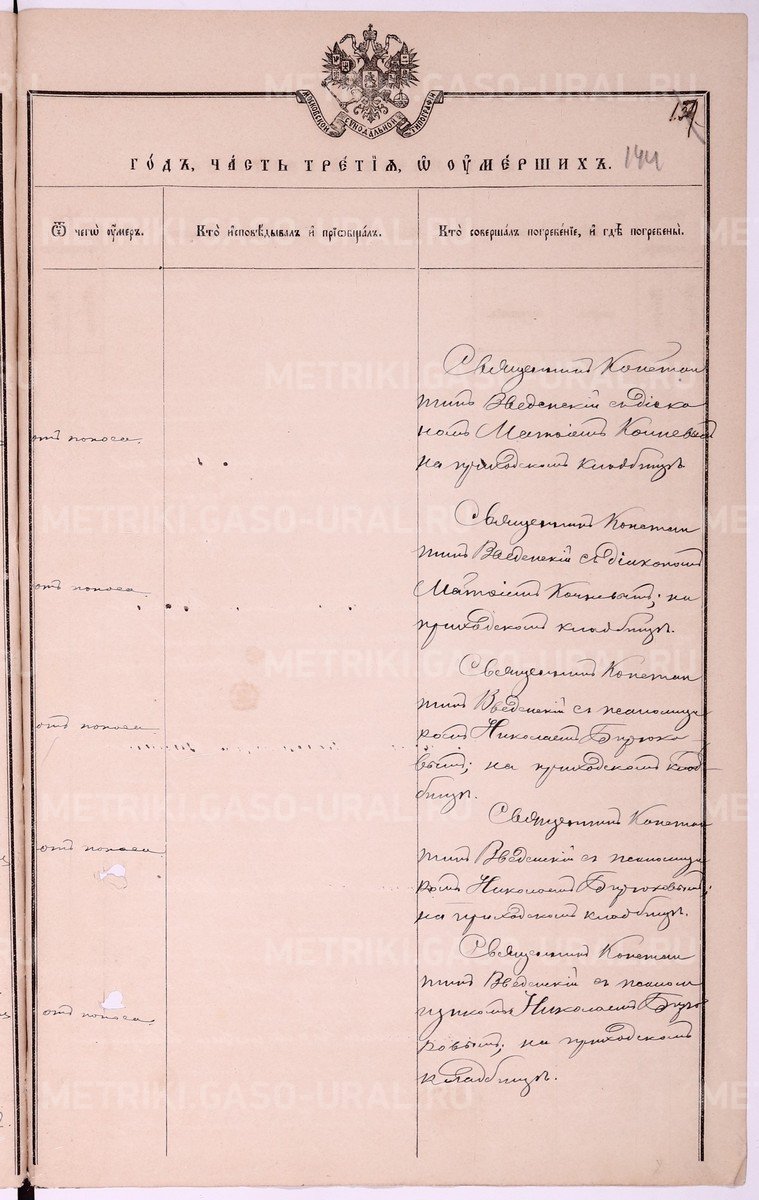 МОСКОВСКОЙ СѴНОДАЛЬНОЙ ТИПОГРАФІИ
137.
144
ГО́ДЪ, ЧА́СТЬ ТРЕ́ТІѦ, Ѡ҆ ОУ҆МЕ́РШИХЪ.
Ѿ чегѡ̀ оу҆́меръ.
Кто̀ и҆сповѣ́дывалъ и҆ прїѡбща́лъ.
Кто̀ соверша́лъ погребе́нїе, и҆ гдѣ̀ погребены̀.
Священникъ Констан
тинъ Введенскій съ діако
номъ Матѳіемъ Кочневымъ
на приходскомъ кладбищѣ
отъ поноса.
Священникъ Констан
тинъ Введенскій съ діакономъ
Матѳіемъ Кочневымъ; на
приходскомъ кладбищѣ.
отъ поноса.
Священникъ Констан
тинъ Введенскій съ псаломщи
комъ Николаемъ Бирюко
вымъ; на приходскомъ клад-
бищѣ.
отъ поноса
Священникъ Констан
тинъ Введенскій съ псаломщи
комъ Николаемъ Бирюковымъ;
на приходскомъ кладбищѣ.
отъ поноса
Священникъ Констан
тинъ Введенскій съ псалом
щикомъ Николаемъ Бирю
ковымъ; на приходскомъ
кладбищѣ.
отъ поноса.
METRIKI.GASO-URAL.RU